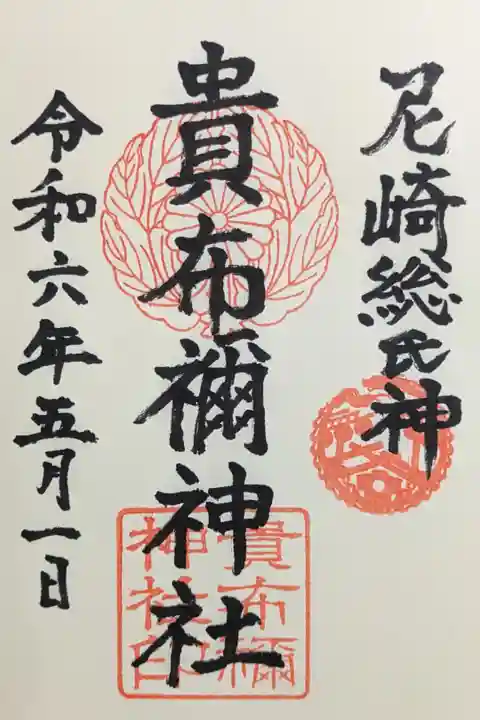 尼崎総氏神
貴布禰神社
令和六年五月一日
貴布禰
神社印